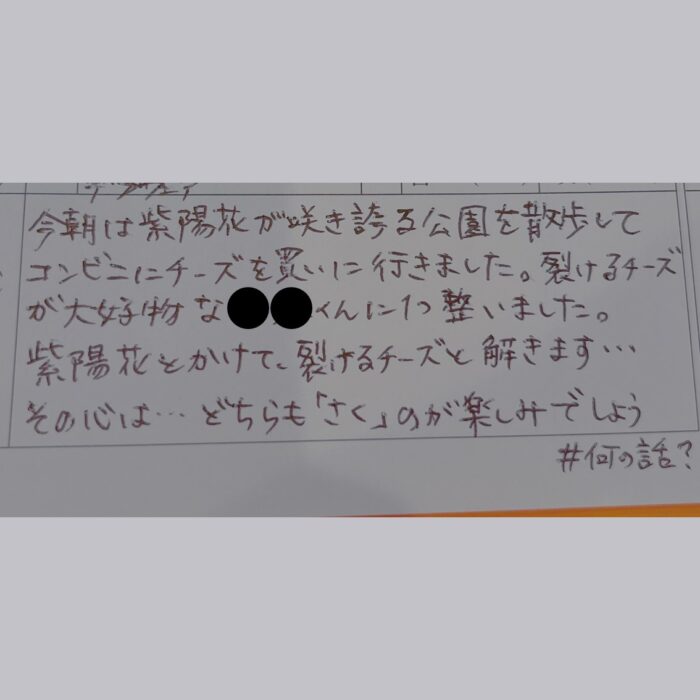 今朝は紫陽花が咲き誇る公園を散歩して
コンビニにチーズを買いに行きました。裂けるチーズ
が大好物な●●くんに1つ整いました。
紫陽花とかけて、裂けるチーズと解きます…
その心は…どちらも「さく」のが楽しみでしょう
#何の話?